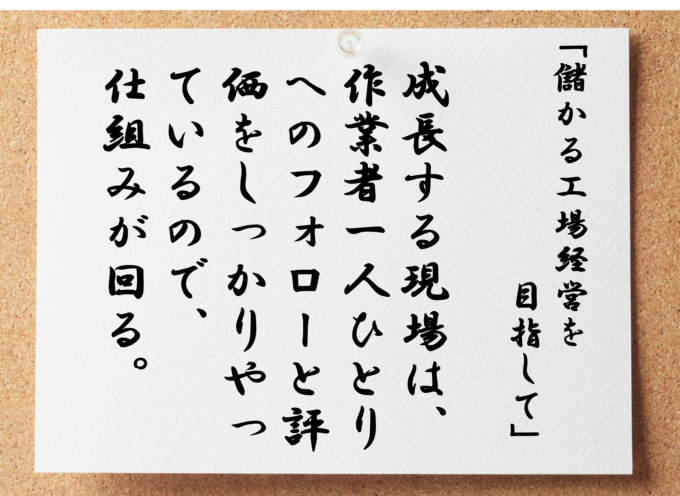 「儲かる工場経営を
目指して」
成長する現場は、
作業者一人ひとり
へのフォローと評
価をしっかりやっ
ているので、
仕組みが回る。